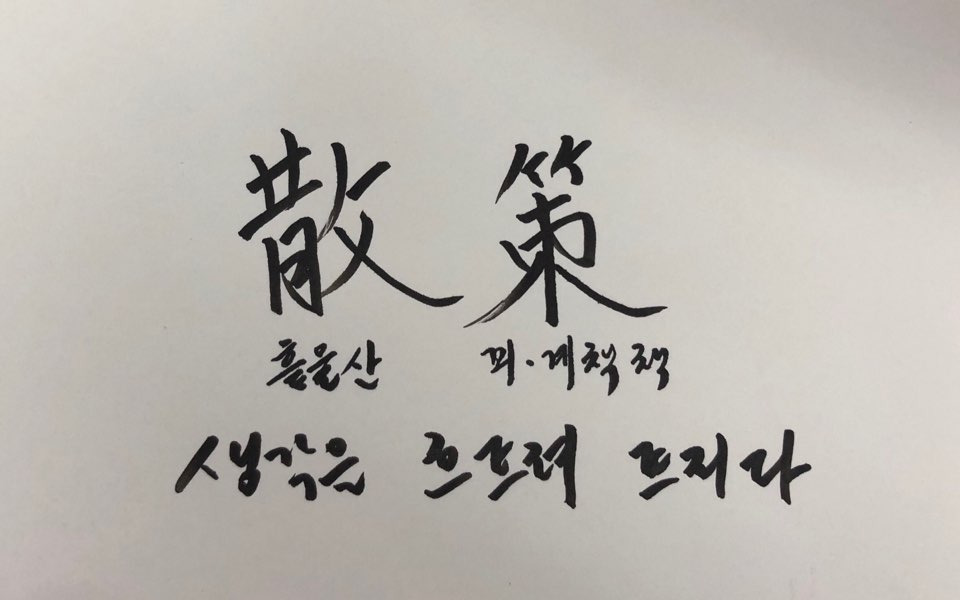 散 策
흩을산 꾀·계책 책
생각을 흐트려 트리다